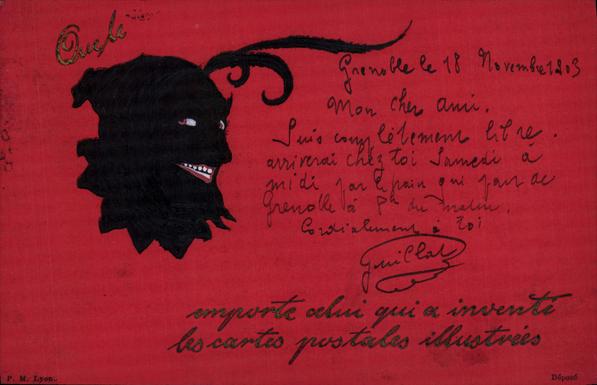 Que le
Grenoble le 18 Novembre 1903
Mon cher ami.
Suis complètement libre.
arriverai chez toi Samedi à
midi par le train qui part de
Grenoble à du matin.
Cordialement à toi
Guillat
emporte celui qui a inventé
les cartes postales illustrées
P. M. Lyon.
Déposé